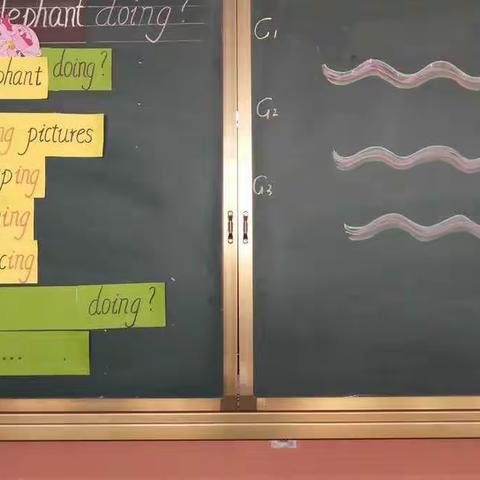 elephant doing?
phant doing?
ng pictures
ping
ing
cing
doing?
....
G1
G2
G3